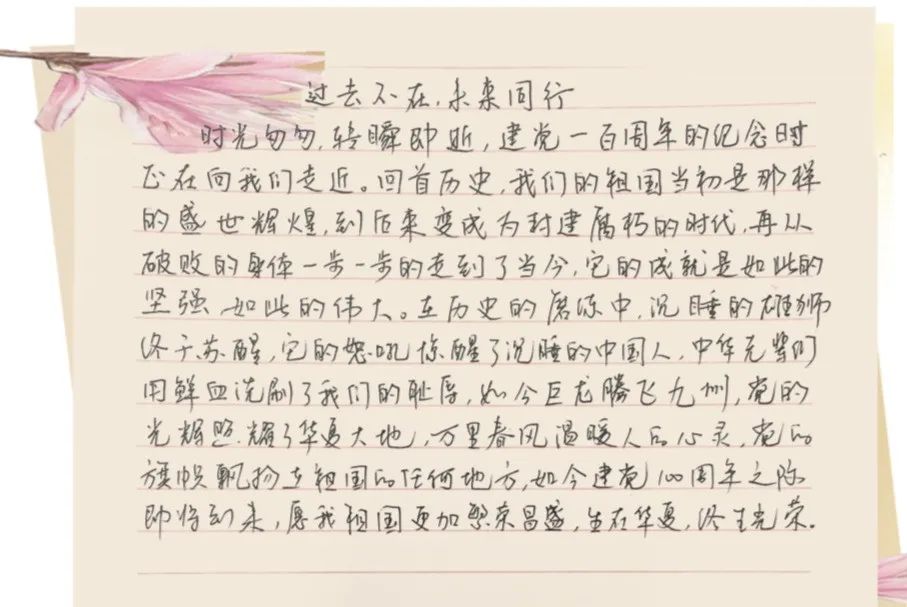 过去不在,未来同行
时光匆匆,转瞬即逝,建党一百周年的纪念时
正在向我们走近。回首历史,我们的祖国当初是那样
的盛世辉煌,到后来变成为封建腐朽的时代,再从
破败的身体一步一步的走到了当今,它的成就是如此的
坚强、如此的伟大。在历史的磨练中,沉睡的雄狮
终于苏醒,它的怒吼惊醒了沉睡的中国人,中华先辈们
用鲜血洗刷了我们的耻辱,如今巨龙腾飞九州,党的
光辉照耀了华夏大地,万里春风温暖人的心灵,党的
旗帜飘扬在祖国的任何地方,如今建党100周年之际
即将到来,愿我祖国更加繁荣昌盛,生在华夏,终生光荣.